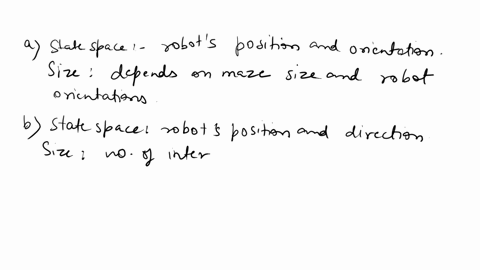 a) State space:- robot's position and orientation.
Size: depends on maze size and robot
orientations.
b) State space: robot's position and direction
Size: no. of inter